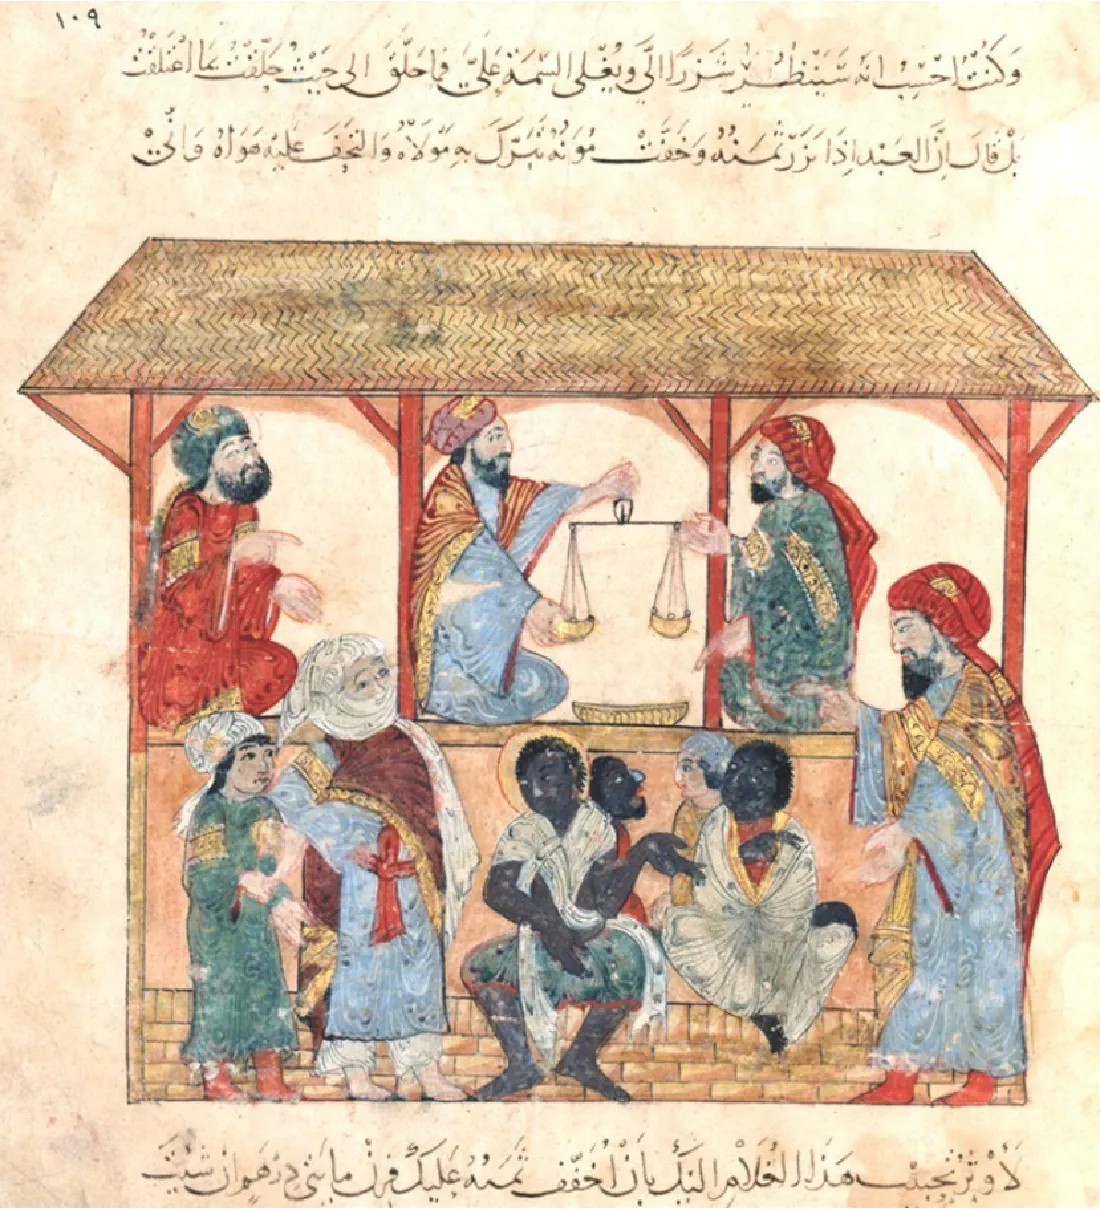 ١٠٩
وكنت احسب انه سينظر شزرا الي ويغلي السيمة علي فما حلق الى حيث حلقت ولا اعتلق بما اعتلقت
بل قال ان العبد اذا نزر ثمنه وخفت مؤنه تبرك به مولاه والتحف عليه هواه واني
لأوثر تحبيب هذا الغلام اليك بأن أخفف ثمنه عليك فزن مايتي درهم ان شيت